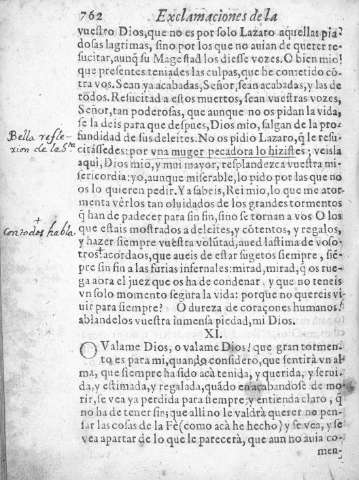 762 Exclamaciones de la
vuestro Dios, que no es por solo Lazaro aquellas pia?
dosas lagrimas, sino por los que no auian de querer re-
sucitar, aunq̃ su Magestad los diesse vozes. O bien mio!
que presentes teniades las culpas, que he cometido cō-
tra vos. Sean ya acabadas, Señor, sean acabadas, y las de
todos. Resucitad a estos muertos, sean vuestras vozes,
Señor, tan poderosas, que aunque no os pidan la vida,
se la deis para que despues, Dios mio, salgan de la pro-
fundidad de sus deleites. No os pidio Lazaro, q̃ le resu-
citassedes: por vna muger pecadora lo hizistes; veisla
aqui, Dios mio, y mui mayor, resplandezca vuestra mi-
sericordia: yo, aunque miserable, lo pido por las que no
os lo quieren pedir. Y a sabeis, Rei mio, lo que me ator-
menta verlos tan oluidados de los grandes tormentos
q̃ han de padecer para sin fin, sino se tornan a vos O los
que estais mostrados a deleites, y cōtentos, y regalos,
y hazer siempre vuestra volūtad, aued lastima de voso-
tros† acordaos, que aueis de estar sugetos siempre, siē-
pre sin fin a las furias infernales: mirad, mirad, q̃ os rue-
ga aora el juez que os ha de condenar. y que no teneis
vn solo momento segura la vida: porque no quereis vi-
uir para siempre? O dureza de coraçones humanos!
ablandelos vuestra inmensa piedad, mi Dios.
XI.
O Valame Dios, o valame Dios! que gran tormen-
to es para mi, quando considero, que sentirà vn al-
ma, que siempre ha sido acà tenida, y querida, y serui-
da, y estimada, y regalada, quādo en acabandose de mo-
rir, se vea ya perdida para siempre; y entienda claro, q̃
no ha de tener fin; que alli no le valdrà querer no pen-
sar las cosas de la Fè (como acà he hecho) y se vea, y se
vea apartar de lo que le parecerà, que aun no auia co-
men-
Bella refle-
xion de la Sta
†
Con todos habla